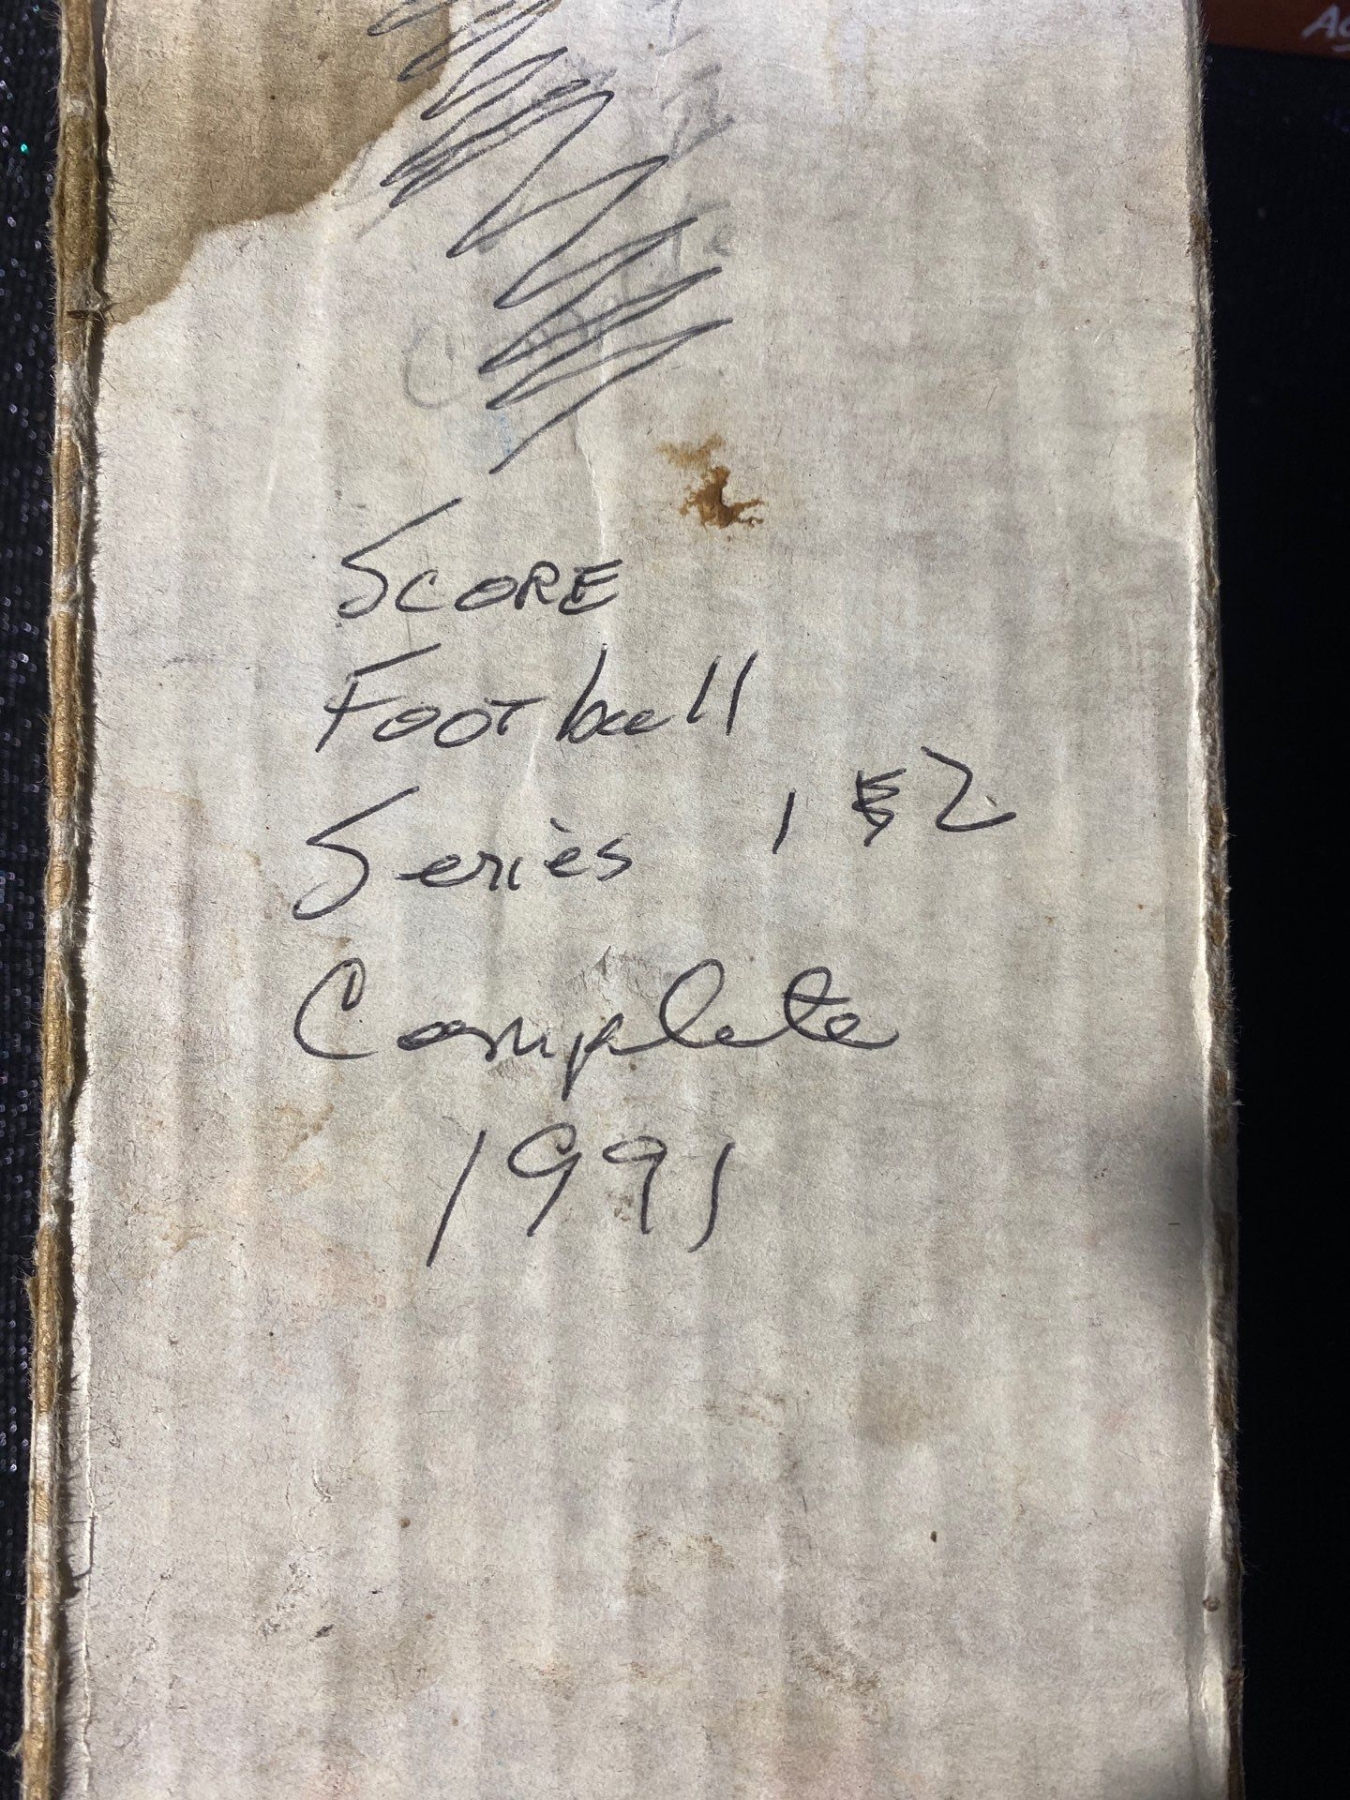 Ag
SCORE
FOOTball
Series 1 & 2
Complete
1991